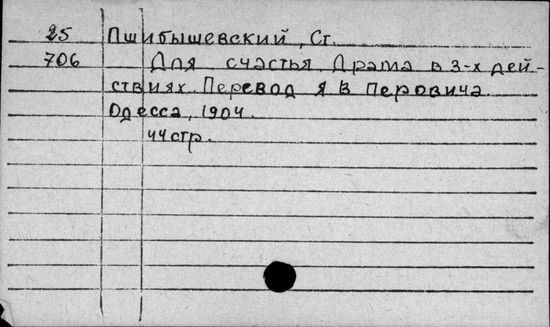 25 Пшибышевский, Ст.
706 Для счастья. Драма в 3-х дей-
ствиях. Перевод Я В Перовича.
Одесса, 1904.
44 стр.